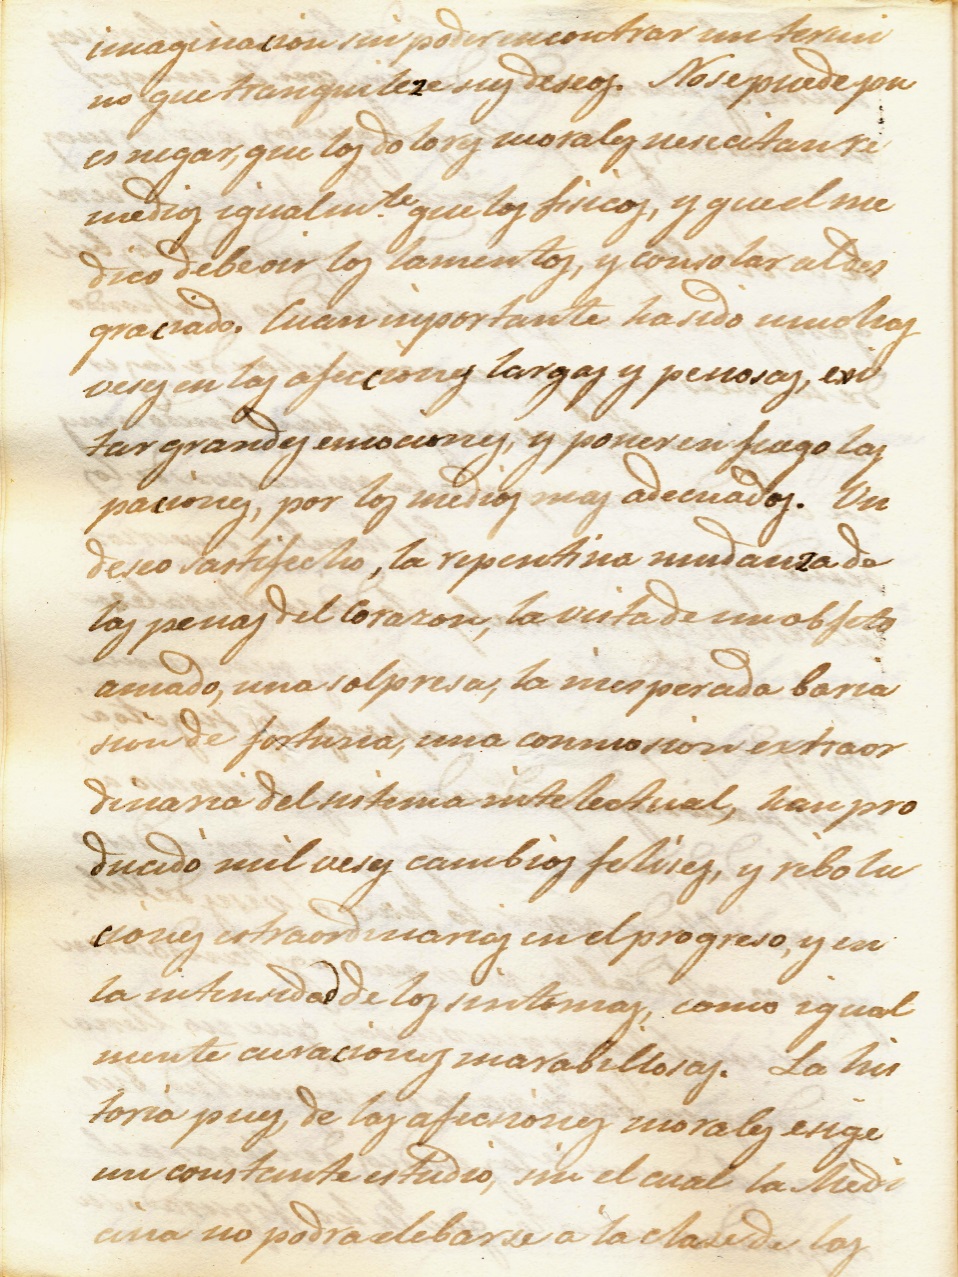 imaginacion sin poder encontrar un termi
no que tranquileze sus deseos. No se puede pu
es negar, que los dolores morales nescitan re
medios igualm.te que los fisicos, y que el me
dico debe oir los lamentos, y consolar al des
graciado. Cuan importante ha sido muchas
veses en las afecciones largas y penosas, exi
tar grandes emociones, y poner en fuego las
paciones, por los medios mas adecuados. Un
deseo sastifecho, la repentina mudanza de
las penas del Corazon, la vista de un obfeto
amado, una solpresa, la inesperada baria
sion de fortuna, una conmosion extraor
dinaria del sistema intelectual, han pro
ducido mil veses cambios felises, y rebolu
ciones estraordinarias en el progreso, y en
la intensidad de los sintomas, como igual
mente curaciones marabillosas. La his
toria pues, de las afecsiones morales exige
un constante estudio, sin el cual la Medi
cina no podra elebarse a la clase de las